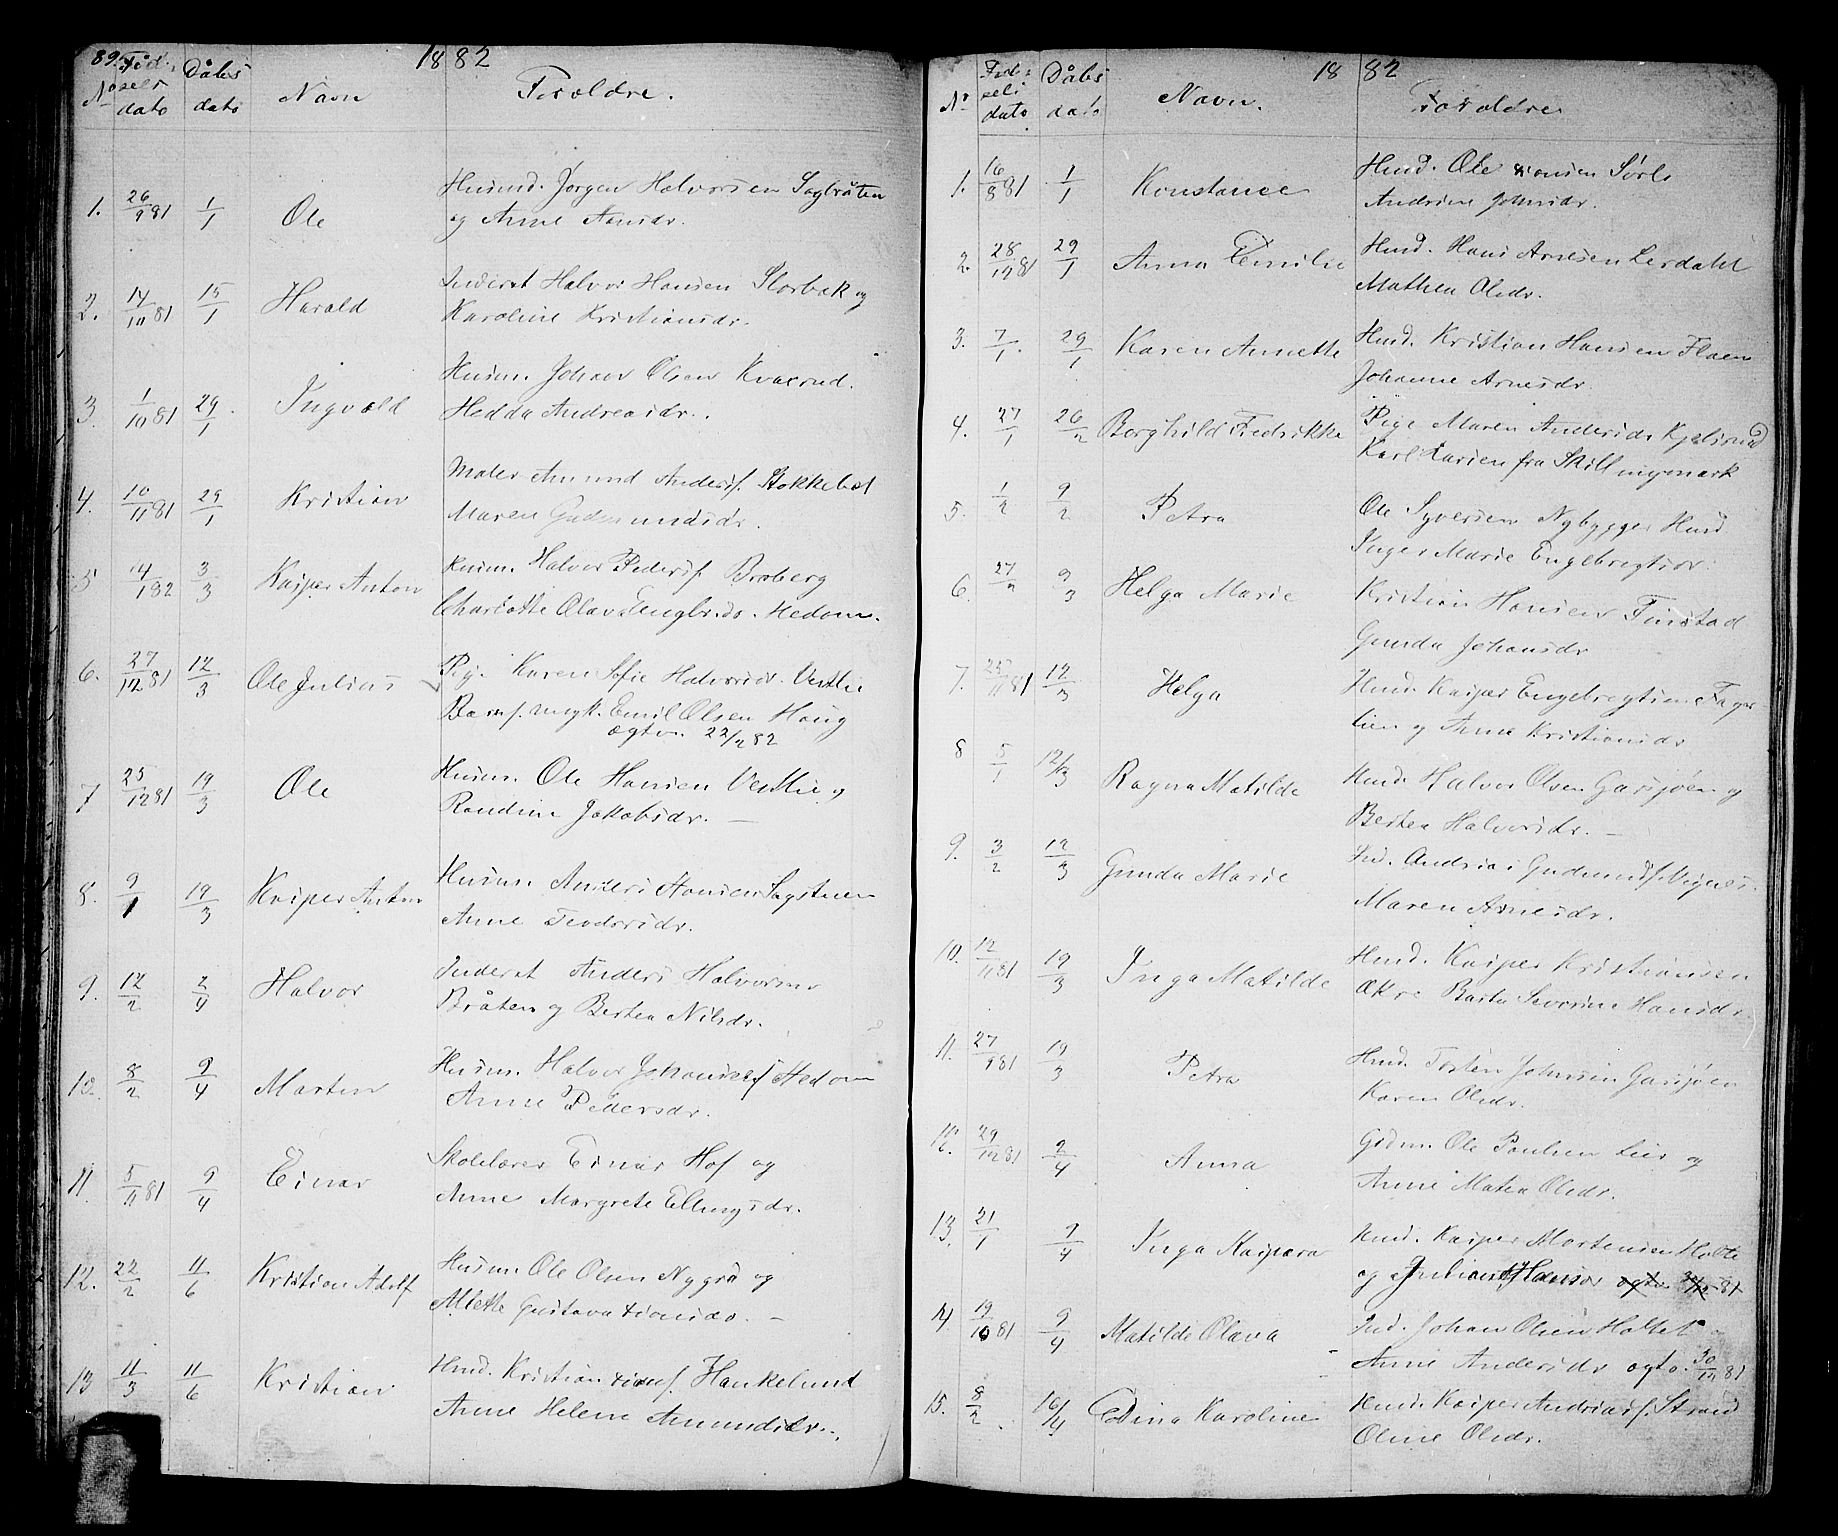 89.
1882
No Fødselsdato Dåbsdato Navn Forældre.
1. 26/9 81 1/1 Ole Husmd. Jørgen Halvorsen Sagbråten
og Anne Hansdr.
2. 14/10 81 15/1 Harald Inderst Halvor Hansen Storbæk og
Karoline Kristiansdr.
3. 1/10 81 29/1 Ingvald Husm. Johan Olsen Kværud.
Hedda Andreasdr.
4. 10/11 81 29/1 Kristian Maler Amund Andersf. Stokkebøl
Maren Gudmundsdr.
5 14/1 82 3/3 Kasper Anton Husm. Halvor Pedersf. Broberg
Charlotte Olava Hedom.
6. 27/12 81 12/3 Ole Julius Pige Karen Sofie Halvorsdr. Vestlie
Barnf. ungk. Emil Olsen Haug
ægtv. 22/2 82
7 25/12 81 19/3 Ole Husm. Ole Hansen Vestlie og
Randine Jakobsdr. —
8. 9/1 19/3 Kasper Anton Husm. Anders Hansen Sagstuen
Anne Teodorsdr.
9. 12/2 2/4 Halvor Inderst Anders Halvorsen
Bråten og Berthea Nilsdr.
10. 8/2 9/4 Morten Husm. Halvor Johannesf. Hedom
Anne Pedersdr.
11. 5/11 81 9/4 Einar Skolelærer Einar Hof og
Anne Margrete Ellingsdr.
12. 22/2 11/6 Kristian Adolf Husm. Ole Olsen Nygrd og
Alette Gustava —
13 11/3 11/6 Kristian Husd. Kristian Haukelund
Anne Helene Amundsdr.
1882
No Fødselsdato Dåbsdato Navn. Forældre
1. 16/8 81 1/1 Konstance Husd. Ole Sørli
Andrine Johnsdr.
2. 28/12 81 29/1 Anna Emilie Husd. Hans Arnesen Lerdalet
Mathea Olsdr.
3. 7/1. 29/1 Karen Annette Husd. Kristian Hansen Floen
Johanne Arnesdr.
4. 27/1 26/2 Borghild Fredrikke Pige Maren Andersdr Kjelsrud
Karl Larsen fra Skillingmark
5. 1/2 9/2 Petra Ole Syversen Nybygger Husd
Inger Marie Engebregtsdr.
6. 27/2 9/3 Helga Marie Kristian Hansen Finstad
Gunda Johansdr
7. 25/11 81 12/3 Helga Husd. Kasper Engebregtsen Fager-
lien og Anne Kristiansdr
8 5/1 12/3 Ragna Matilde Husd. Halvor Olsen Gåsjøen og
Berthea Halvorsdr. —
9. 3/2 12/3 Gunda Marie Ind. Andreas Gudmundsf. Vignes.
Maren Arnesdr.
10. 12/11 81 19/3 Inga Matilde Husd. Kasper Kristiansen
Økre Berte Severine Hansdr.
11. 27/9 81 19/3 Petra Husd. Torsten Johnsen Gåsjøen
Karen Olsdr.
12. 29/12 81 9/4 Anna Gdm. Ole Paulsen Lier og
Anne Matea Olsdr.
13. 21/1 9/4 Inga Kaspara Husd. Kasper Mortensen Holte
og Juliane Hansdr ægtv. 81
14 19/10 81 9/4 Matilde Olava Ind. Johan Olsen Holtet
Anne Andersdr ægtv. 30/12 81
15. 8/2 16/4 Edina Karoline Husd. Kasper Andreasf. Strand
Oline Olsdr.